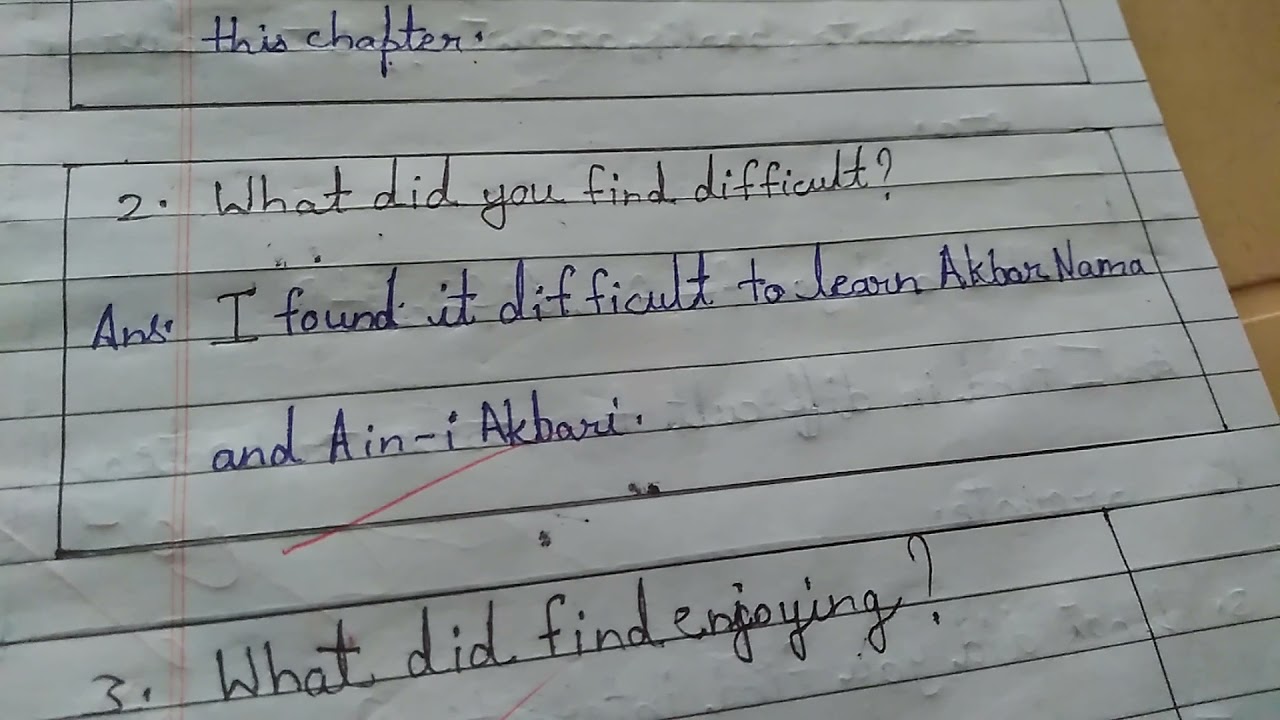 this chapter.
2. What did you find difficult?
Ans. I found it difficult to learn Akbar Nama
and Ain-i Akbari.
3. What did find enjoying?